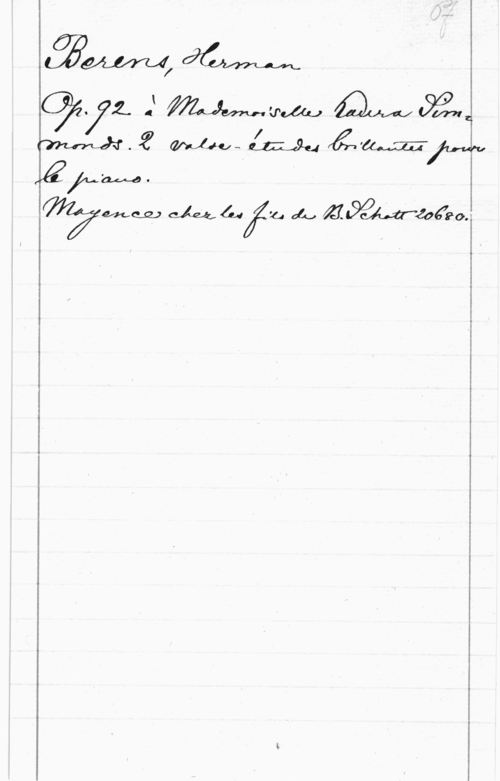 Berens, Herman
Op. 92 à Mademoiselle Laura Sim=
monds. 2 valse-études brillantes pour
le piano.
Mayence chez les fils de B. Schott 20680.